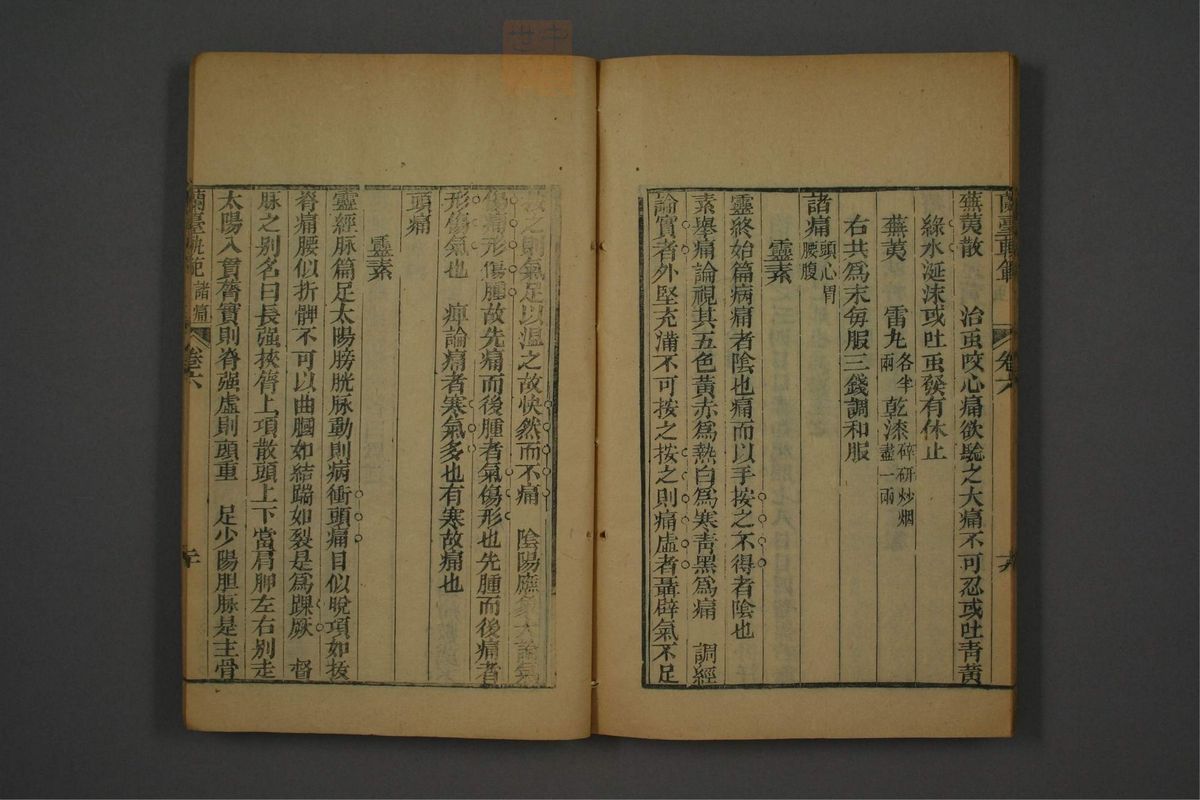 蕪荑散　治虫咬心痛欲驗之大痛不可忍或吐青黃
綠水涎沫或吐虫發有休止
蕪荑　雷丸各半兩　乾漆碎研炒烟盡一兩
右共爲末每服三錢調和服
諸痛頭心胃腰腹
靈素
靈終始篇病痛者陰也痛而以手按之不得者陰也
素舉痛論視其五色黃赤爲熱白爲寒青黑爲痛　調經
論實者外堅充滿不可按之按之則痛虛者聶辟氣不足
按之則氣足以溫之故快然而不痛　陰陽應象大論氣
傷痛形傷腫故先痛而後腫者氣傷形也先腫而後痛者
形傷氣也　痺論痛者寒氣多也有寒故痛也
頭痛
靈素
靈經脉篇足太陽膀胱脉動則病衝頭痛目似脫項如拔
脊痛腰似折髀不可以曲膕如結踹如裂是爲踝厥　督
脉之别名曰長强挾膂上項散頭上下當肩胛左右别走
太陽入貫膂實則脊强虛則頭重　足少陽胆脉是主骨
蘭臺軌範　諸痛　卷六